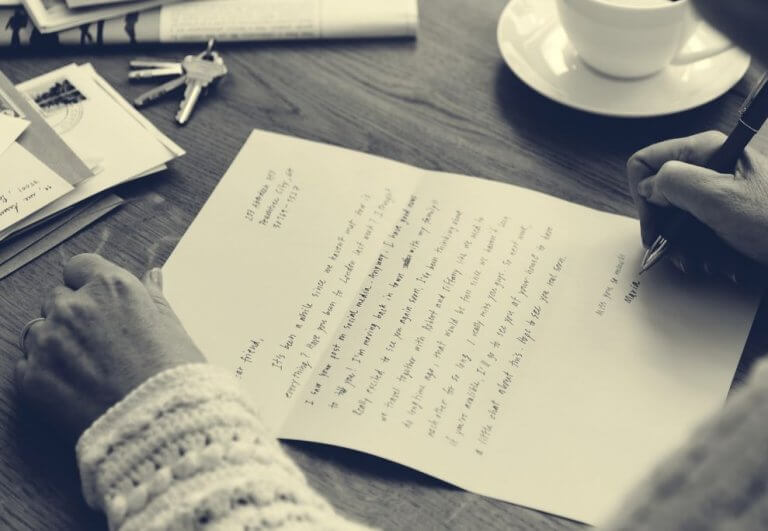 Peachtree City, GA
30189-5527
ar friend,
It's been a while since we haven't met. How is
everything? Have you been to London last week? I thought
I saw your post on social media. Anyway, I have good news
to tell you! I'm moving back in town with my family!!
Really excited to see you again soon. I've been thinking about
we travel together with Robert and Tiffany like we used to
do long time ago, that would be fun since we haven't seen
each other for so long. I really miss you guys. So next week,
if you're avalible, I'll go to see you at your house to have
a little chat about this. Hope to see you real soon.
Miss you so much
Maria